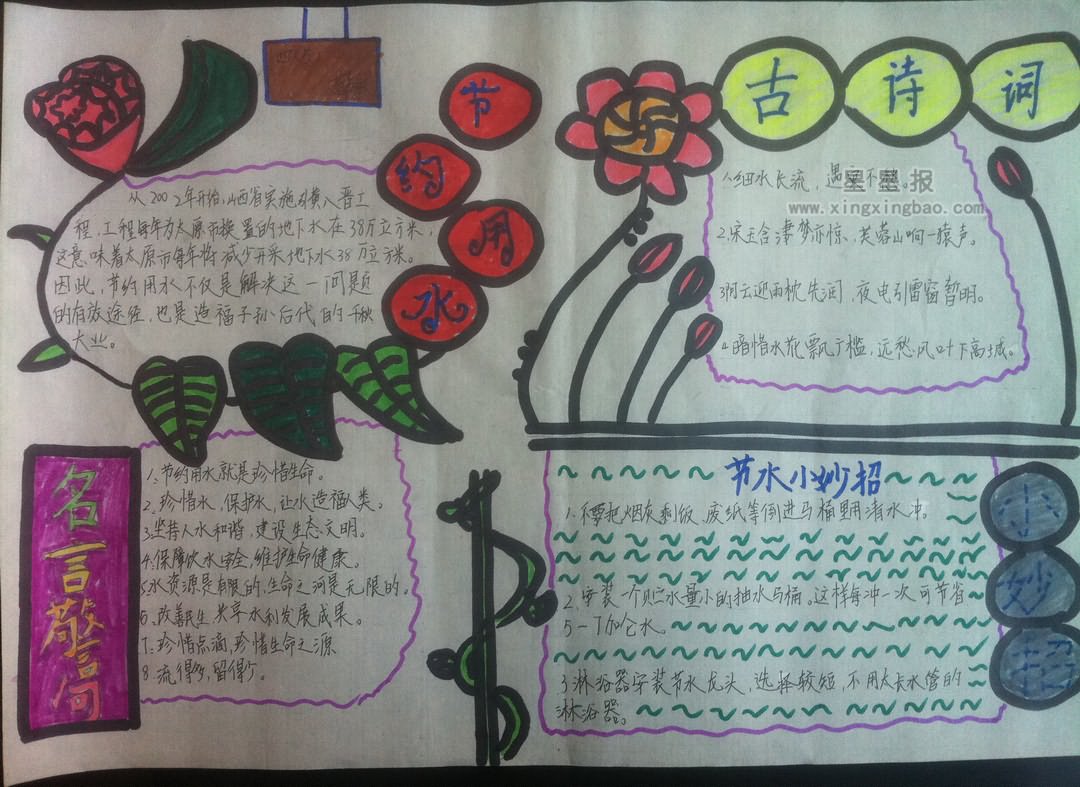 节约用水
从2002年开始,山西省实施引黄入晋工
程,工程每年为太原市换置的地下水在38万立方米,
这意味着太原市每年将减少开采地下水38万立方米。
因此,节约用水不仅是解决这一问题
的有效途径,也是造福子孙后代的千秋
大业。
古诗词
星星报
www.xingxingbao.com
1.细水长流,遇
不
2.宋玉含凄梦亦惊,芙蓉山响一猿声。
3.阴云迎雨枕先润,夜电引雷窗暂明。
4.暗惜水花飘广槛,远愁风叶下高城。
名言警句
1.节约用水就是珍惜生命。
2.珍惜水,保护水,让水造福人类。
3.坚持人水和谐,建设生态文明。
4.保障饮水安全,维护生命健康。
5.水资源是有限的,生命之河是无限的。
6.改善民生 共享水利发展成果。
7.珍惜点滴,珍惜生命之源
8.流得多,留得少。
节水小妙招
小妙招
1.不要把烟灰、剩饭、废纸等倒进马桶里用清水冲。
2.安装一个贮水量小的抽水马桶。这样每冲一次可节省
5—7加仑水。
3.淋浴器安装节水龙头,选择较短,不用太长水管的
淋浴器。